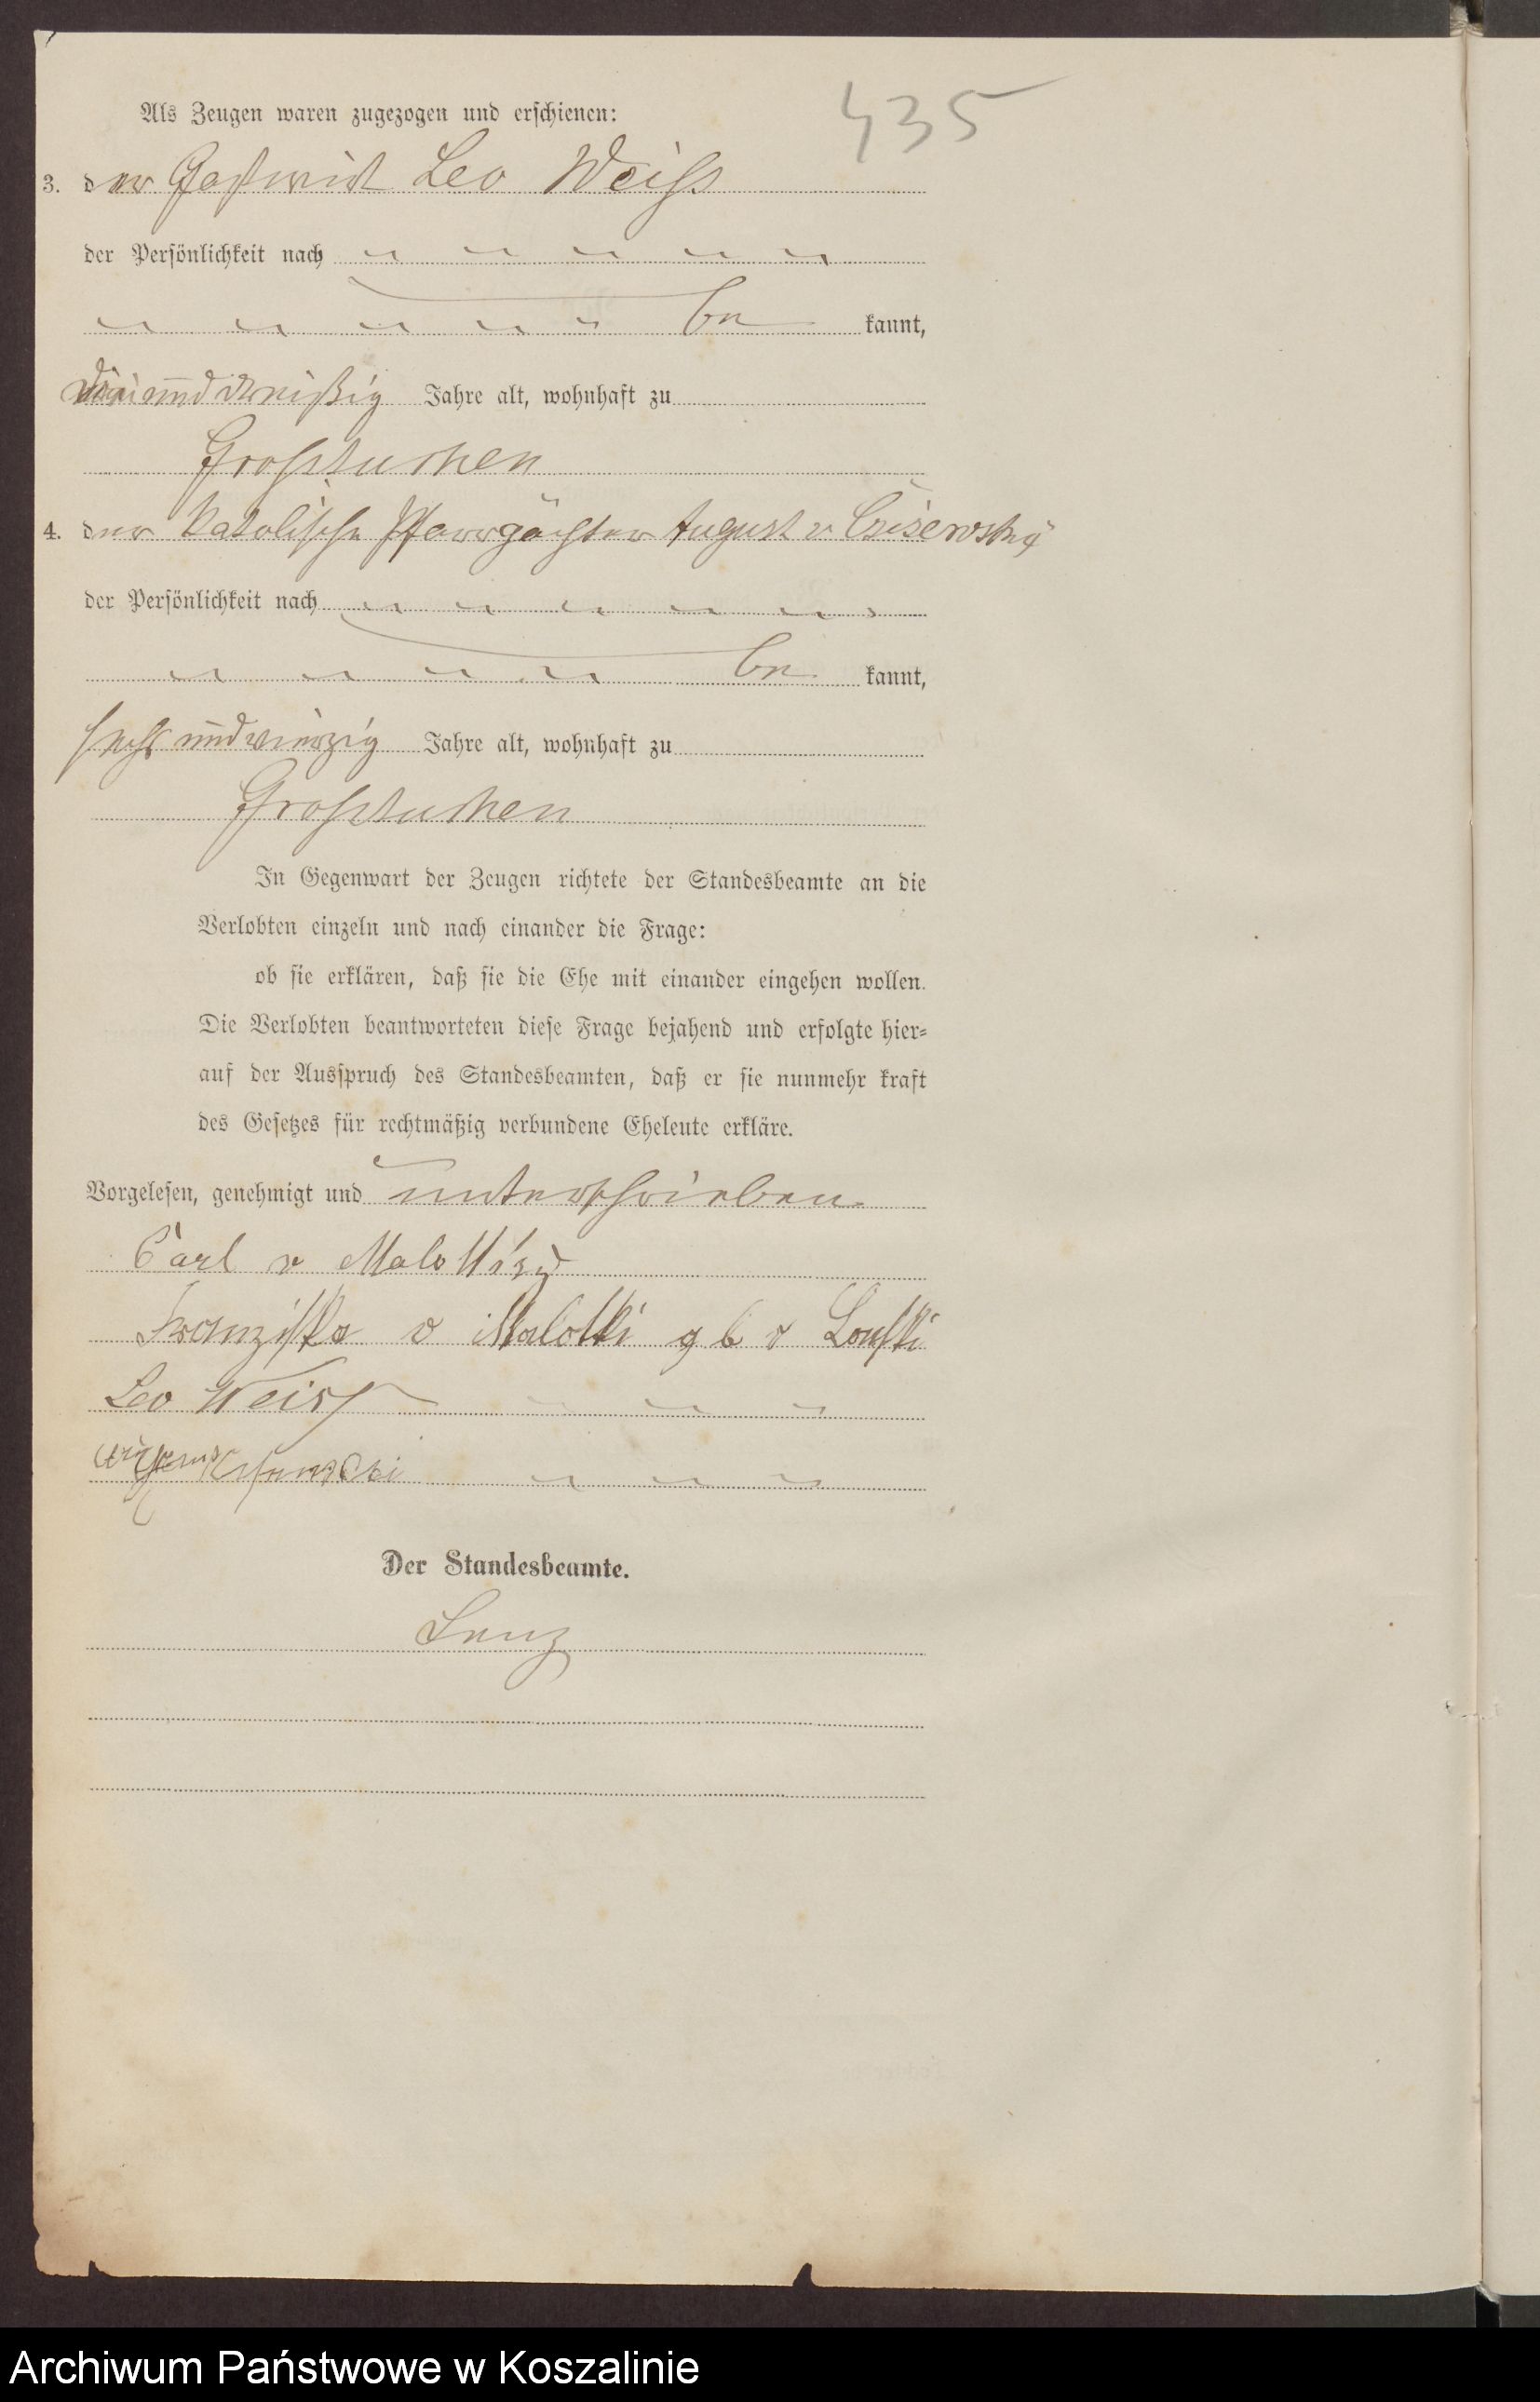 435
Als Zeugen waren zugezogen und erschienen:
3. der Gastwirt Leo Weiss
der Persönlichkeit nach
be kannt,
dreiunddreißig Jahre alt, wohnhaft zu
Grosstuchen
4. der katolische Pfarrpächter August v
der Persönlichkeit nach
be kannt,
sechsundvierzig Jahre alt, wohnhaft zu
Grosstuchen
In Gegenwart der Zeugen richtete der Standesbeamte an die
Verlobten einzeln und nach einander die Frage:
ob sie erklären, daß sie die Ehe mit einander eingehen wollen.
Die Verlobten beantworteten diese Frage bejahend und erfolgte hier=
auf der Ausspruch des Standesbeamten, daß er sie nunmehr kraft
des Gesetzes für rechtmäßig verbundene Eheleute erkläre.
Vorgelesen, genehmigt und unterschrieben
Carl v
Franziska v Malottki g b v
Leo Weiss
Der Standesbeamte.
Lenz
Archiwum Państwowe w Koszalinie